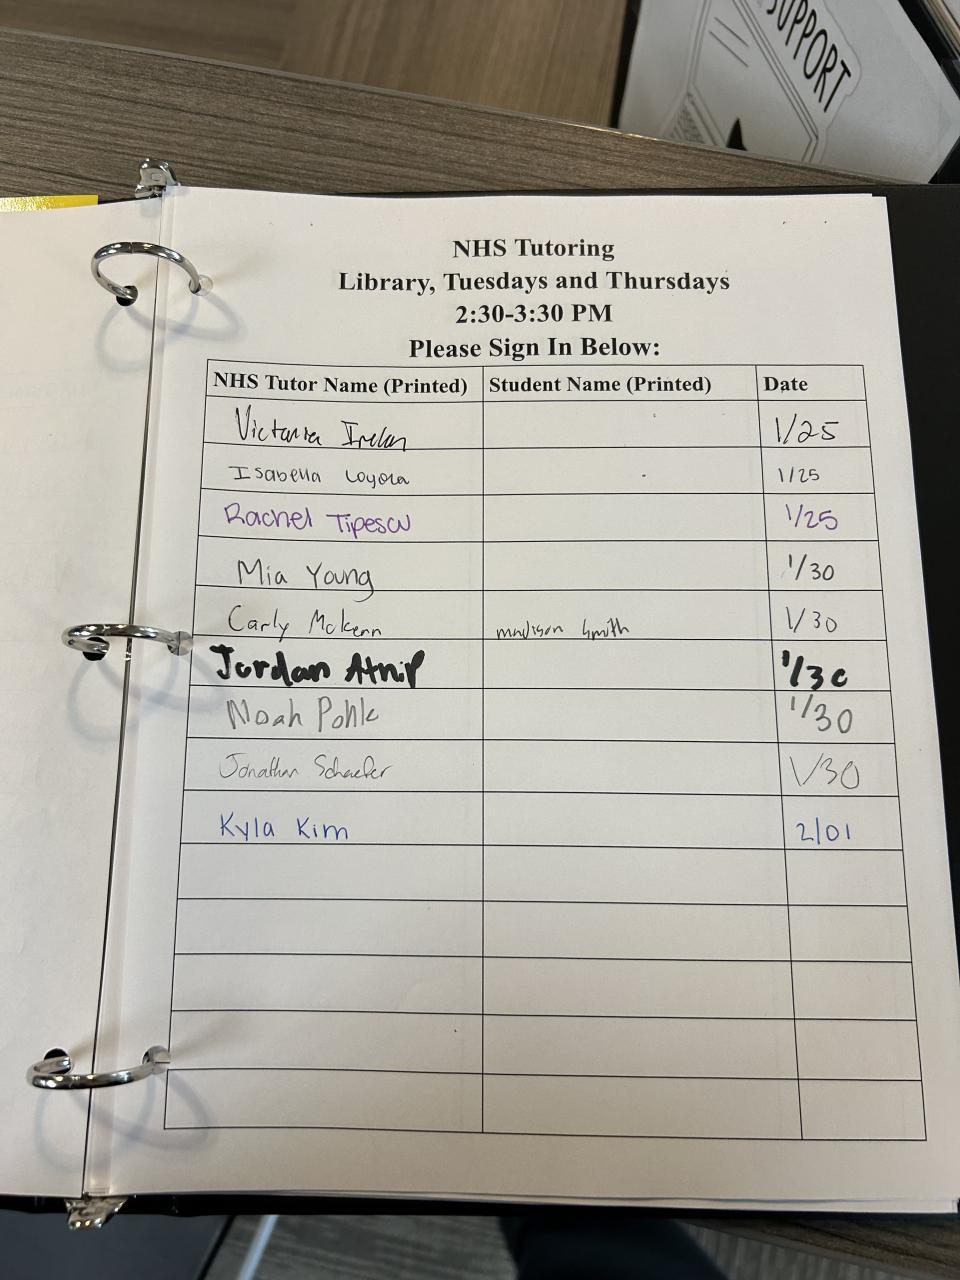 SUPPORT
NHS Tutoring
Library, Tuesdays and Thursdays
2:30-3:30 PM
Please Sign In Below:
NHS Tutor Name (Printed) Student Name (Printed) Date
Victoria 1/25
Isabella Loyola 1/25
Rachel Tipescu 1/25
Mia Young 1/30
Carly McKenn madison Smith 1/30
Jordan Atnip 1/30
Noah Pohlc 1/30
Jonathan Schaefer 1/30
Kyla Kim 2/01